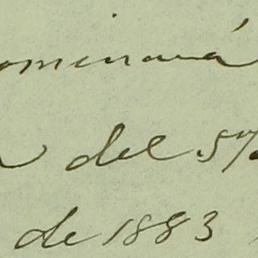 ominará
del 5
de 1883